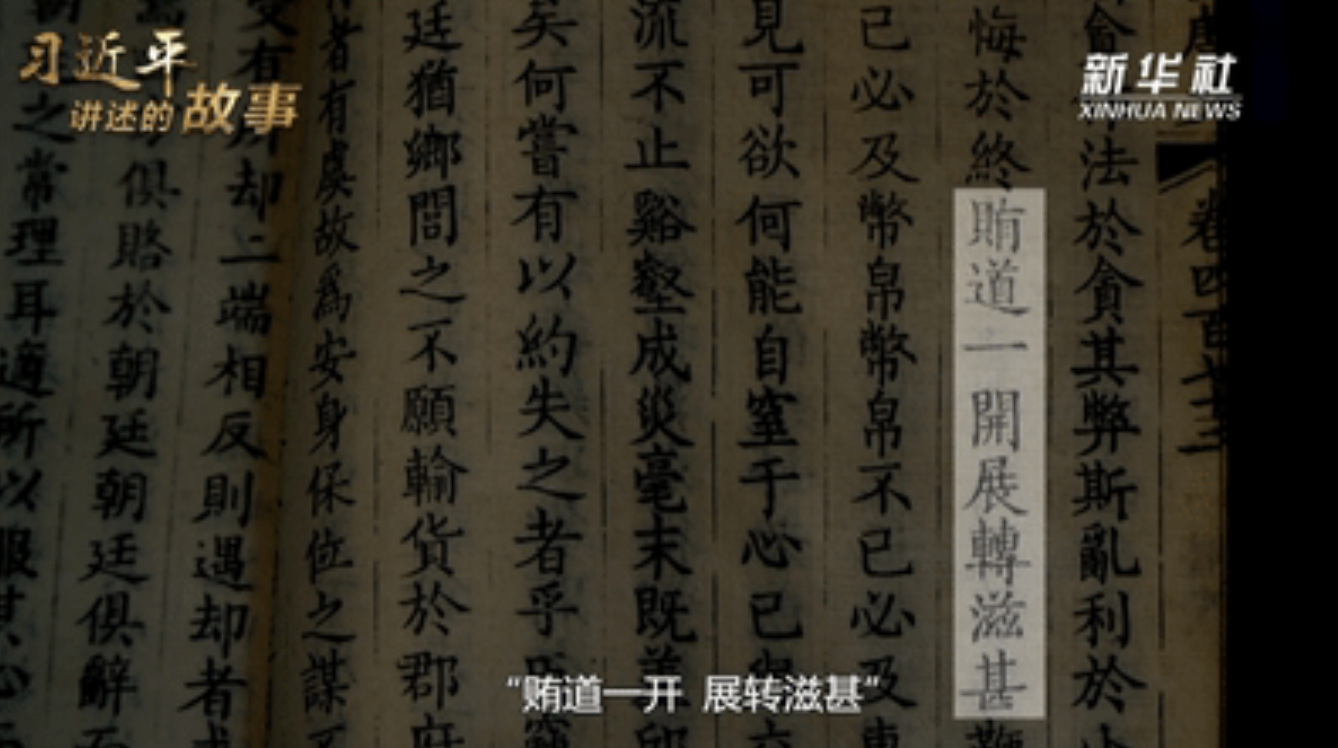 习近平
讲述的故事
新华社
XINHUA NEWS
卷四百七十三
法於貪其弊斯亂利於
悔於終賄道一開展轉滋甚
已必及幣帛幣帛不已必及車
見可欲何能自窒于心已
流不止谿壑成災毫末既差
矣何嘗有以約失之者乎
廷猶鄉閭之不願輸貨於郡府
者有虞故為安身保位之謀
却二端相反則遇却者
俱賂於朝廷朝廷俱辭
之常理耳適所以服其心
“贿道一开 展转滋甚”